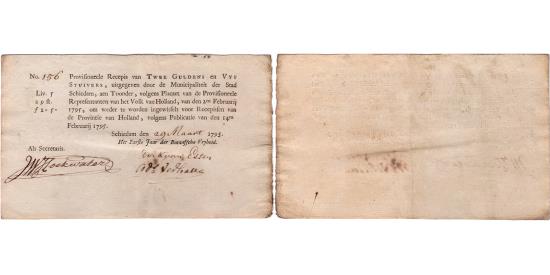 No. 156
Provisioneele Recepis van TWEE GULDENS en VYF
STUIVERS, uitgegeven door de Municipaliteit der Stad
Liv. 5
Schiedam, aan Toonder, volgens Placaet van de Provisioneele
29 st.
Representanten van het Volk van Holland, van den 2den Februarij
f 2-5-
1795, om weder te worden ingewisselt voor Recepissen
van de Provintie van Holland, volgens Publicatie van den 14den
Februarij 1795.
Schiedam den 29 Maart 1795.
Het Eerste Jaar der Bataafsche Vryheid.
Als Secretaris.